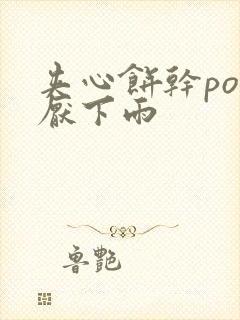 夹心餅幹po
厭下雨
魯艷